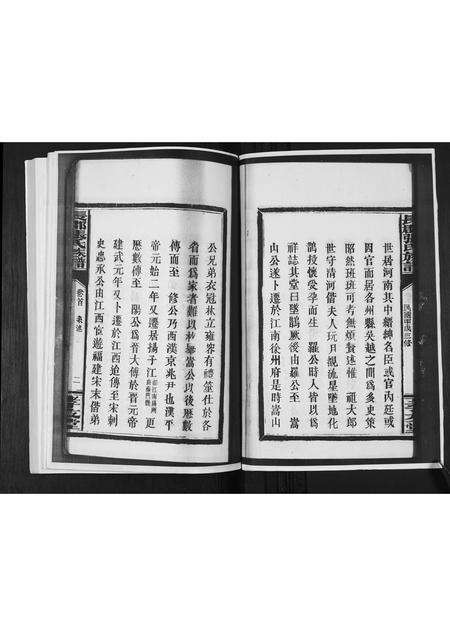 世居河南其中續紳名臣或官內廷或
因官而居各州縣吳越之間爲多史策
昭然班班可考無煩贅述惟 祖大郎
世守清河偕夫人玩月覩流星墜地化
鵲投懷受孕而生 羅公時人皆以爲
祥誌其堂曰墜鵲厥後由羅公至 嵩
山公遂卜遷於江南徐州府是時嵩山
公兄弟衣冠林立雍容有禮筮仕於各
省而爲家者難以枚舉嵩公以後歷數
傳而至 修公乃西漢京兆尹也漢平
帝元始二年又遷居揚子江 更
歷數傳至 闓公爲晉大傅於晉元帝
建武元年又卜遷於江西遞傳至宋刺
史忠承公由江西宦遊福建宋末偕弟
卷首 彙述 二
民國 修